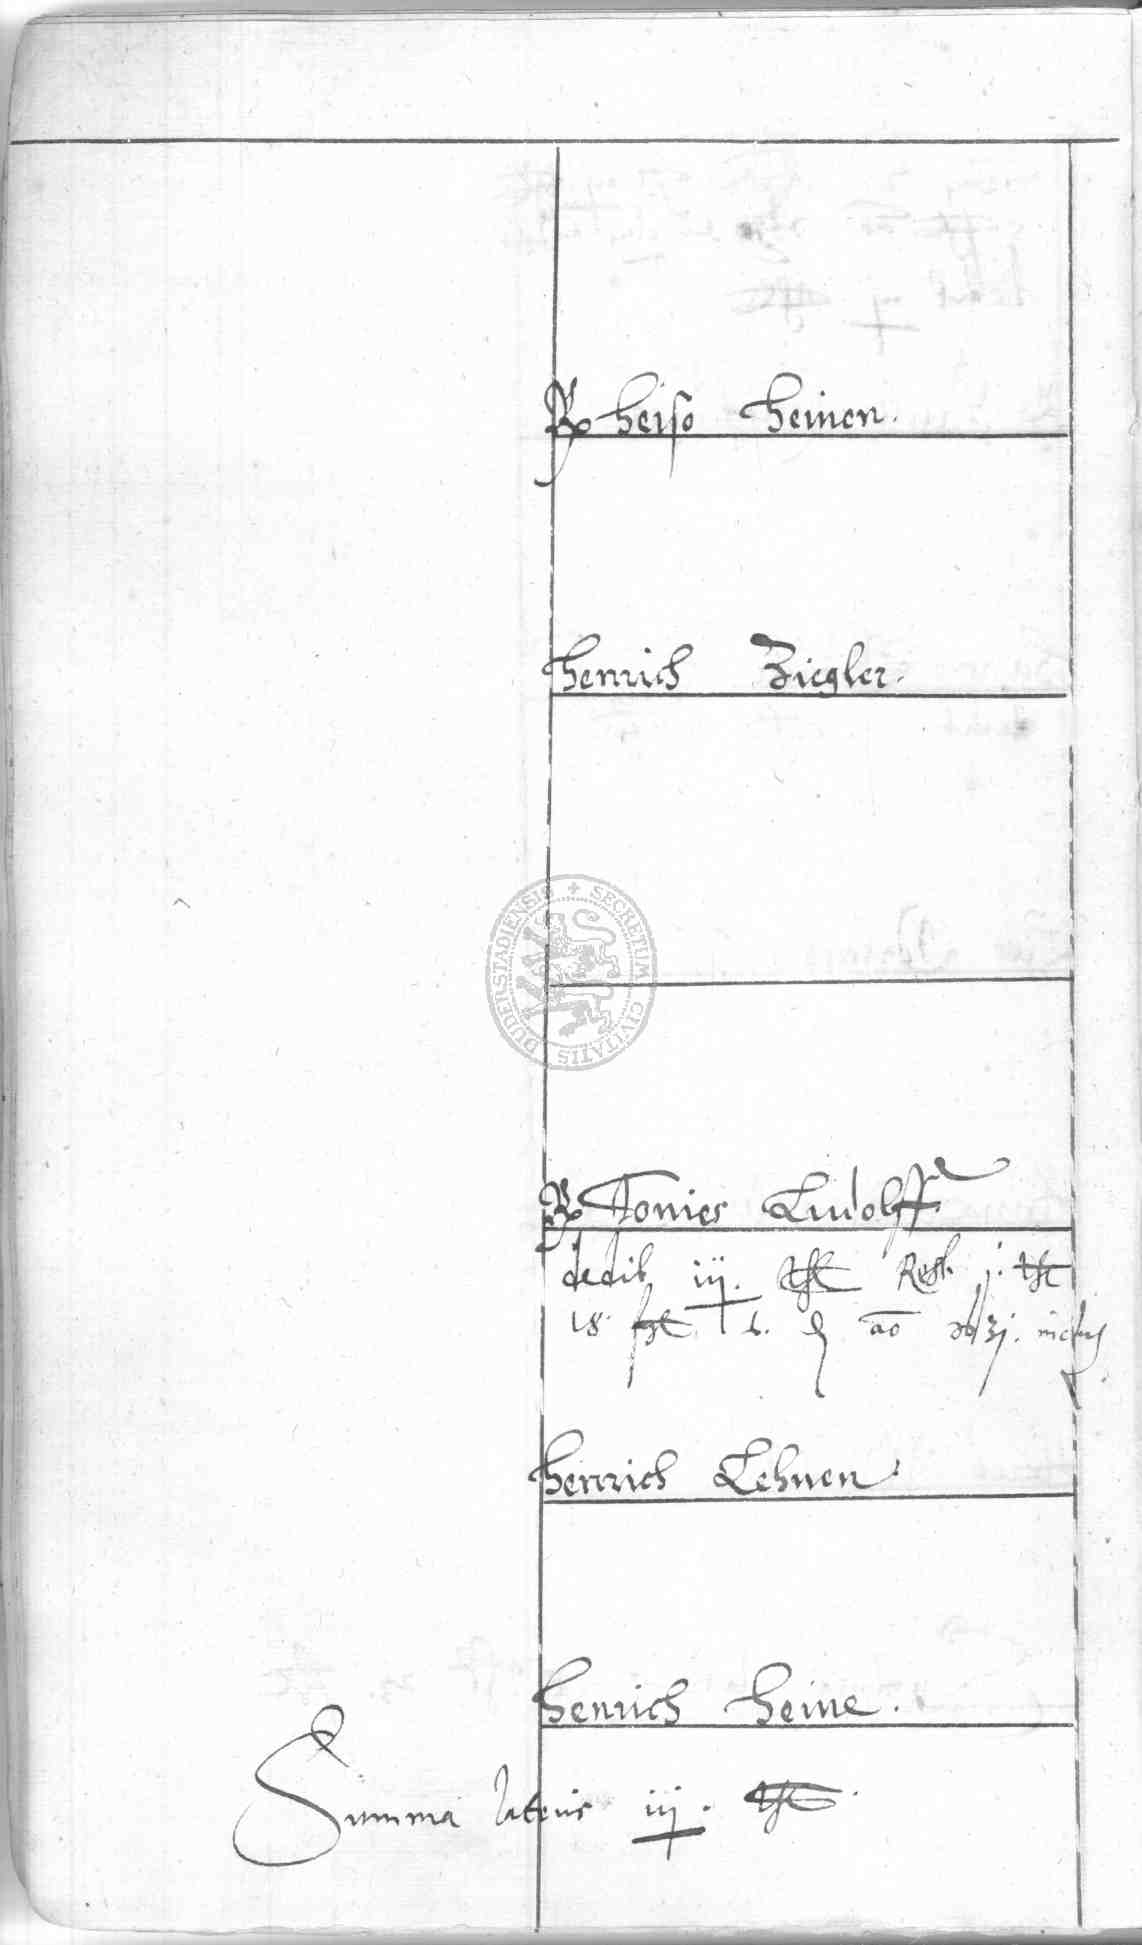 Heiso Heinen.
Henrich Ziegler.
DUDERSTADIENSIS + SECRETUM CIVITATIS
Tonies Ludolff
dedit iij. Rest. j.
18. 6. ao
Henrich Lehnen
Henrich Heine.
Summa lateris iij.